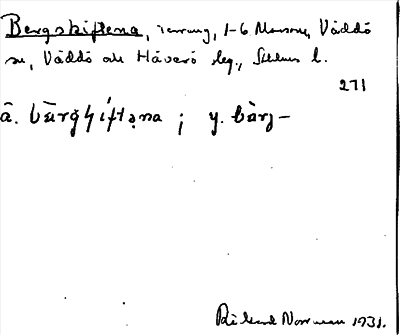 Bergskiftena, terräng, 1-6 Massum, Väddö
sn, Väddö och Häverö skg., Sthlms l.
271
å. bärgʃíftəna ; y. bàrj-
Rikard Norrman 1931.